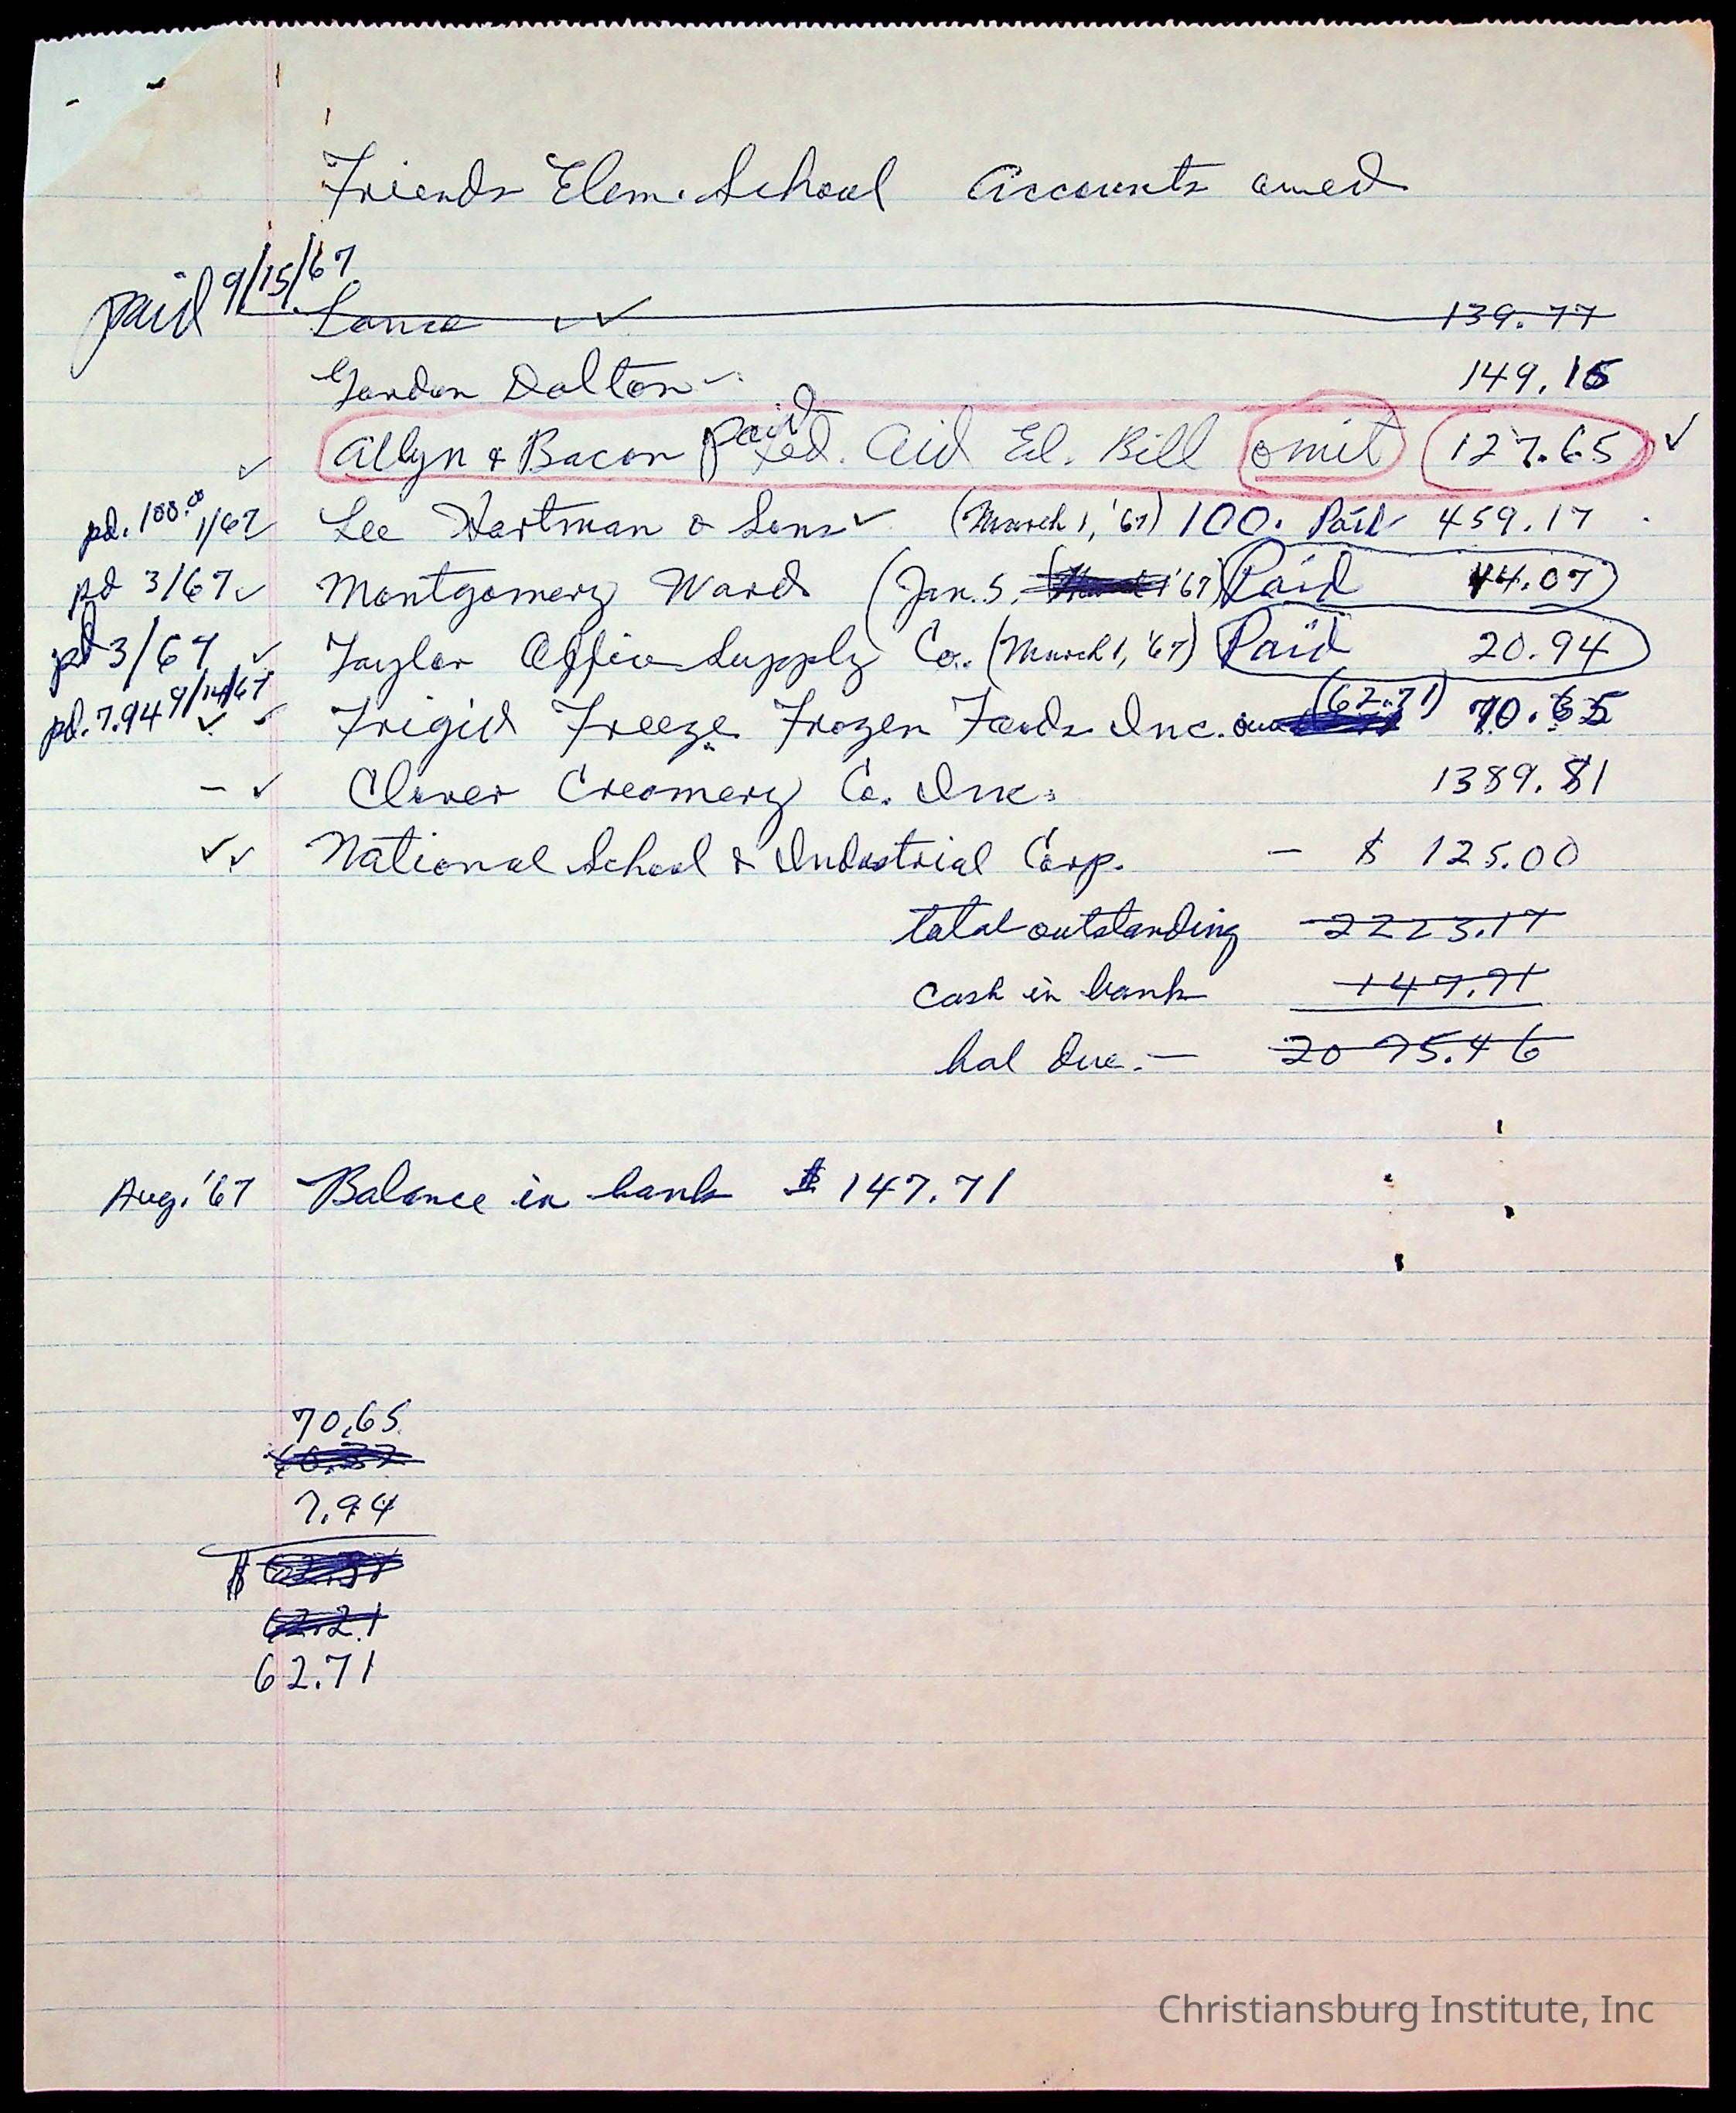 Friends Elem. School Accounts owed
paid 9/15/67 Lance 139.77
Gordon Dalton 149.15
Allyn & Bacon paid Fed. Aid El. Bill omit 127.65
pd. 100.00 1/67 Lee Hartman & Sons (March 1, '67) 100. Paid 459.17
pd 3/67 Montgomery Ward (Jan. 5, '67) Paid 44.07
pd 3/67 Taylor Office Supply Co. (March 1, '67) Paid 20.94
pd. 7.94 9/14/67 Frigid Freeze Frozen Foods Inc. (62.71) 70.65
Clover Creamery Co. Inc. 1389.81
National School & Industrial Corp. — $ 125.00
total outstanding 2223.17
cash in bank 147.71
bal due. — 2075.46
Aug. '67 Balance in bank $ 147.71
70.65
7.94
$
62.21
62.71
Christiansburg Institute, Inc